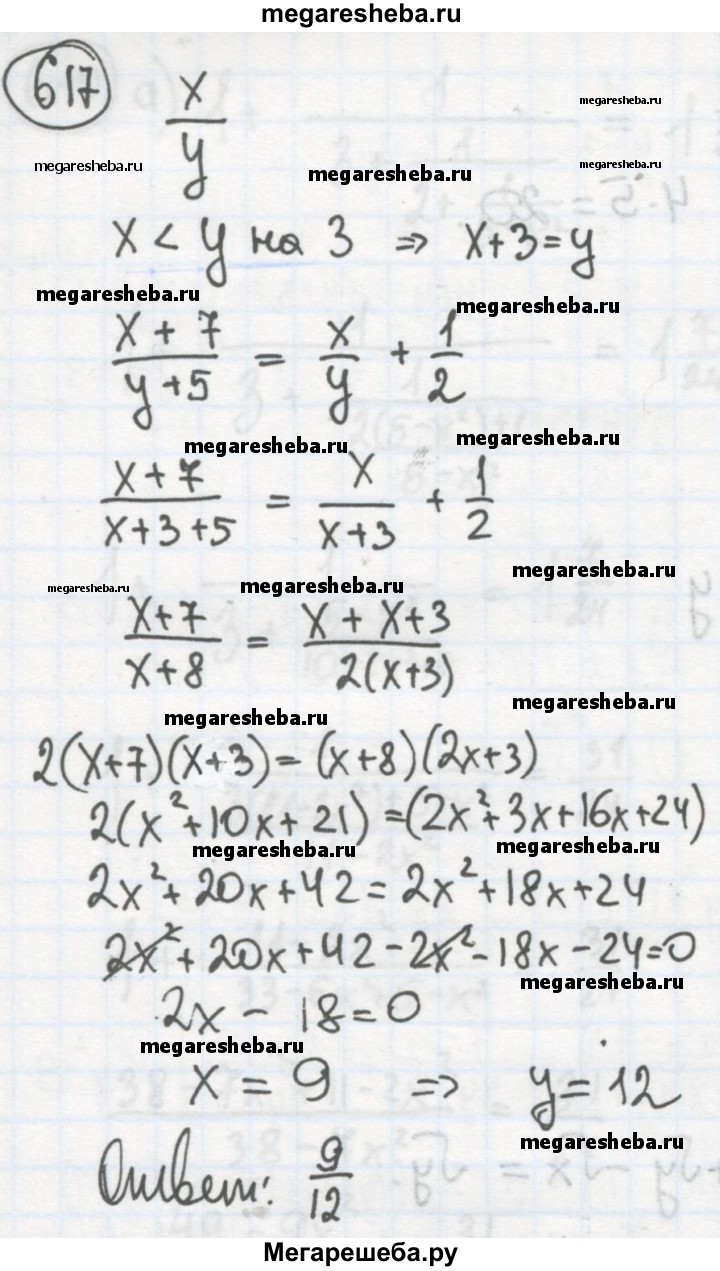 megaresheba.ru
617
x/y
megaresheba.ru
megaresheba.ru
megaresheba.ru
megaresheba.ru
x < y на 3 ⇒ x+3=y
megaresheba.ru
megaresheba.ru
(x+7)/(y+5) = x/y + 1/2
megaresheba.ru
megaresheba.ru
(x+7)/(x+3+5) = x/(x+3) + 1/2
megaresheba.ru
megaresheba.ru
megaresheba.ru
(x+7)/(x+8) = (x+x+3)/(2(x+3))
megaresheba.ru
megaresheba.ru
2(x+7)(x+3)=(x+8)(2x+3)
2(x²+10x+21)=(2x²+3x+16x+24)
megaresheba.ru
megaresheba.ru
2x²+20x+42=2x²+18x+24
2x²+20x+42-2x²-18x-24=0
megaresheba.ru
2x-18=0
megaresheba.ru
x=9 ⇒ y=12
megaresheba.ru
Ответ: 9/12
Мегарешеба.ру